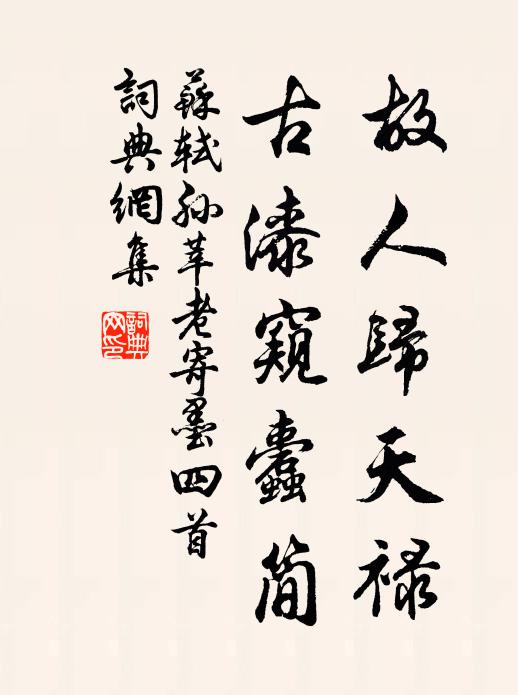 故人歸天禄
古漆窺蠹简
蘇軾孫莘老寄墨四首
詞典網集
詞典網印